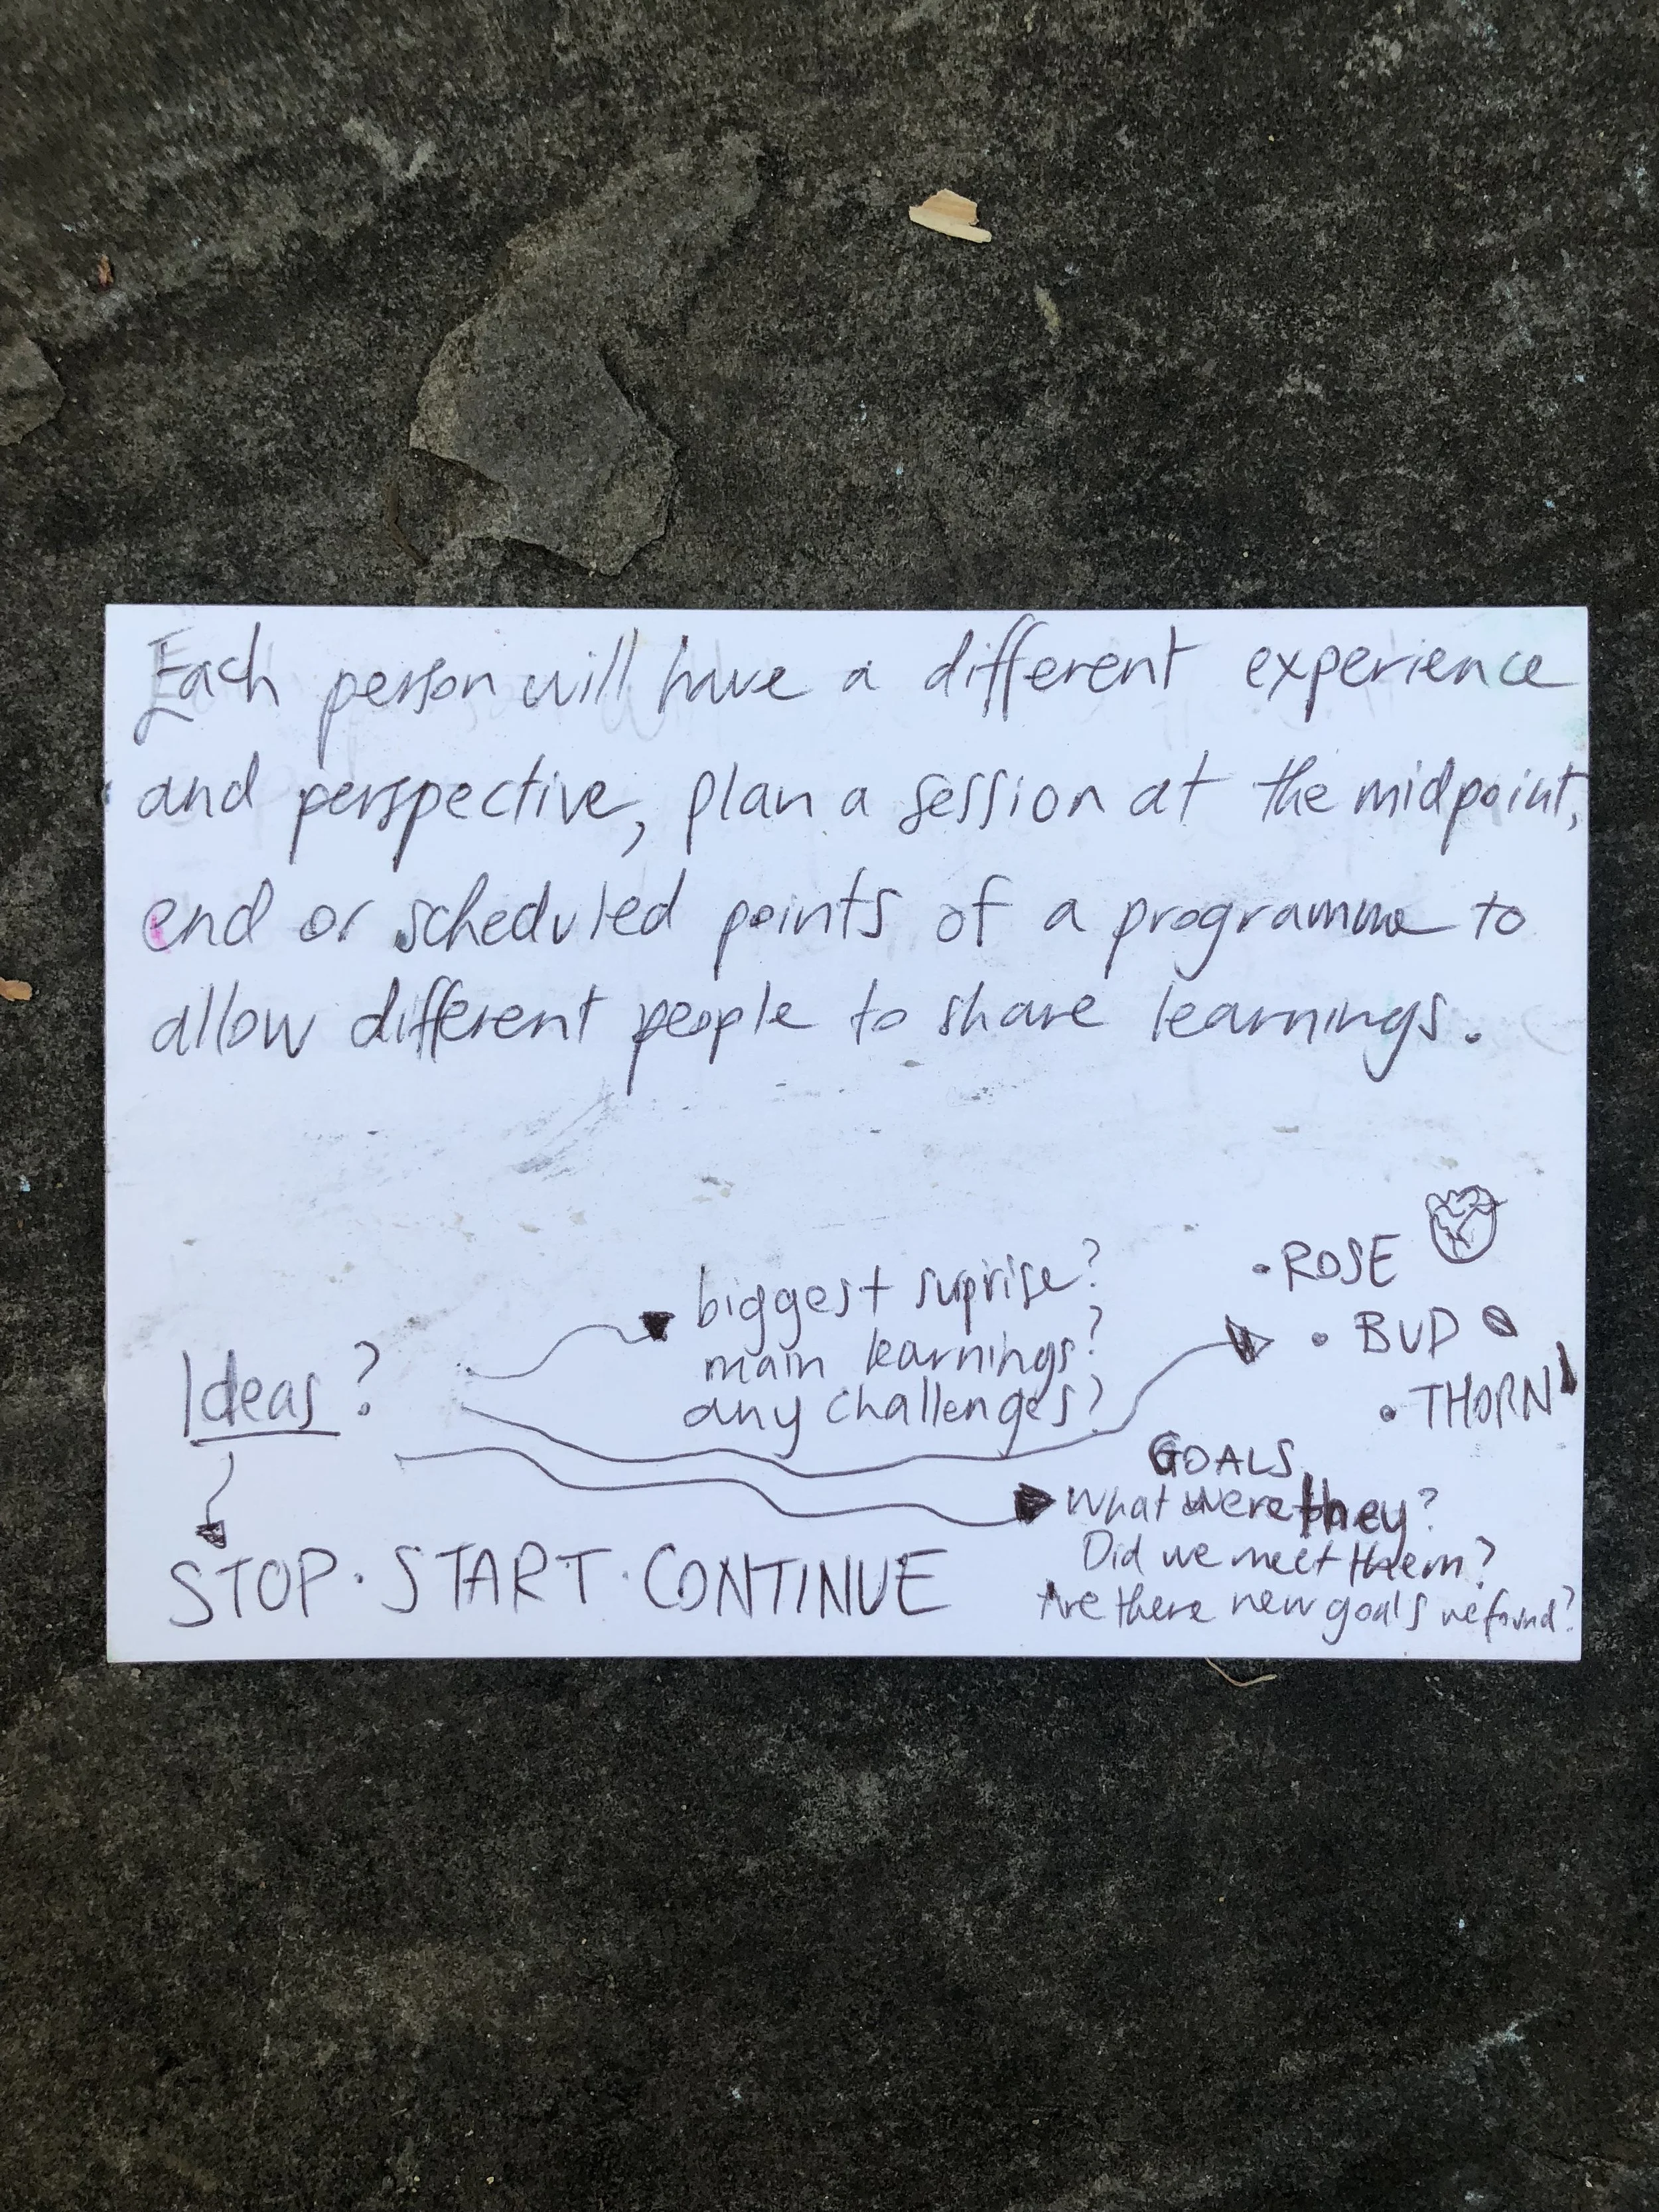 Each person will have a different experience
and perspective, plan a session at the midpoint,
end or scheduled points of a programme to
allow different people to share learnings.
Ideas?
biggest suprise?
main learnings?
any challenges?
• ROSE
• BUD
• THORN
GOALS
What were they?
Did we meet them?
Are there new goals we found?
STOP · START · CONTINUE